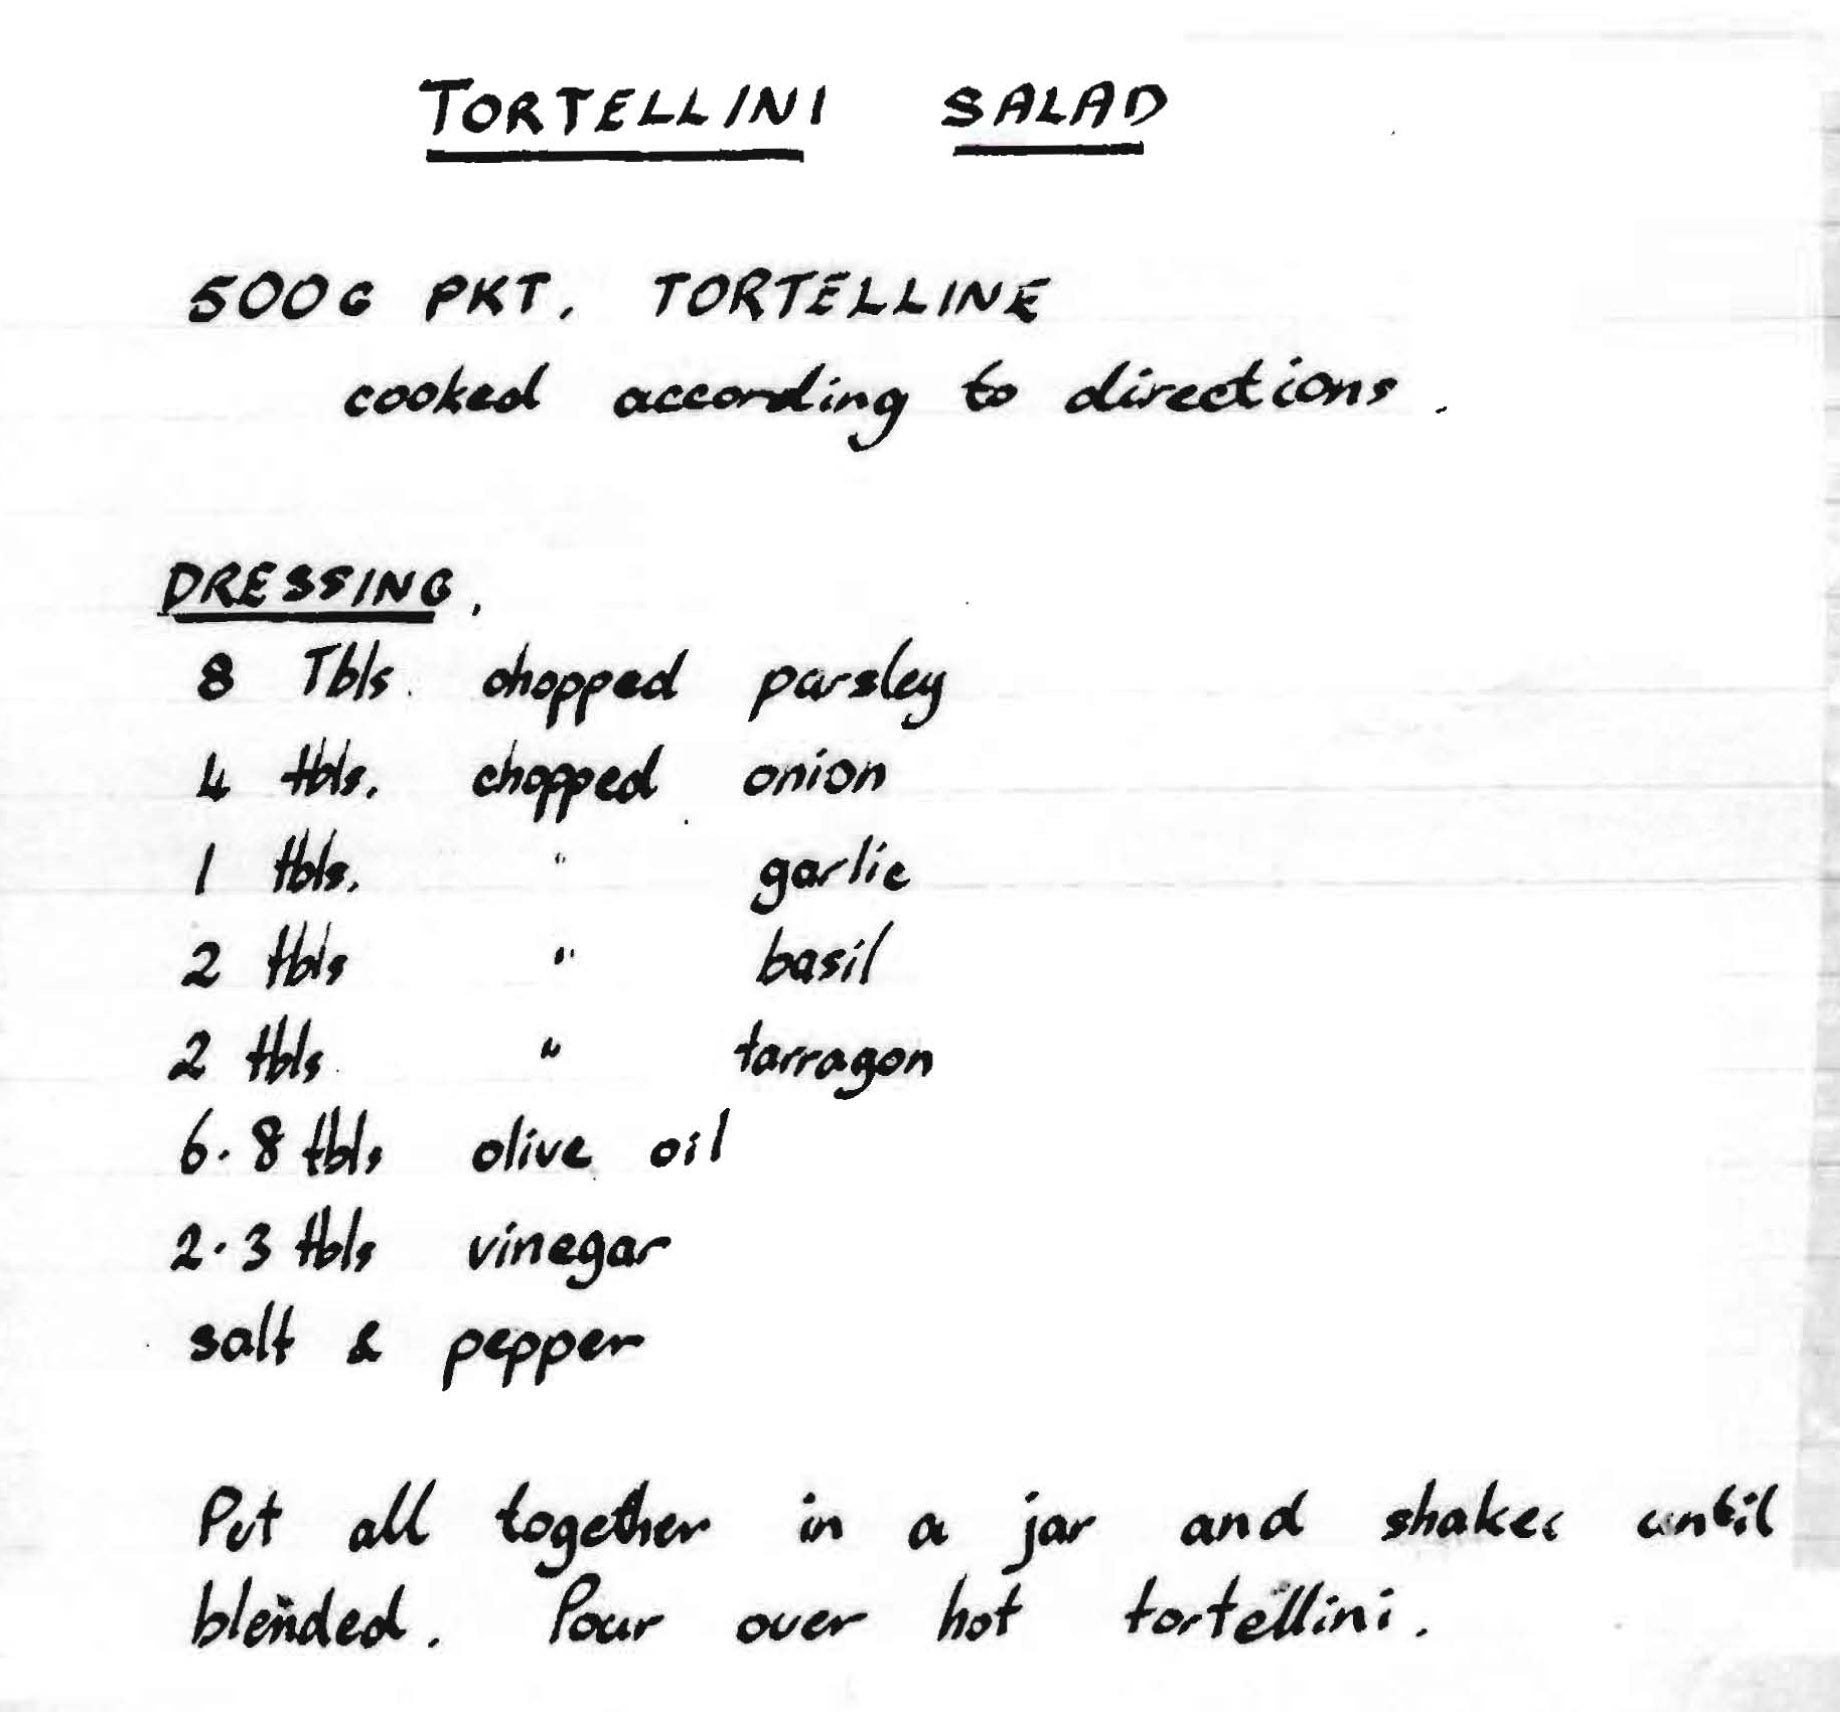 TORTELLINI SALAD
500G PKT. TORTELLINE
cooked according to directions.
DRESSING.
8 Tbls. chopped parsley
4 tbls. chopped onion
1 tbls. " garlic
2 tbls " basil
2 tbls. " tarragon
6-8 tbls olive oil
2-3 tbls vinegar
salt & pepper
Put all together in a jar and shakee until
blended. Pour over hot tortellini.